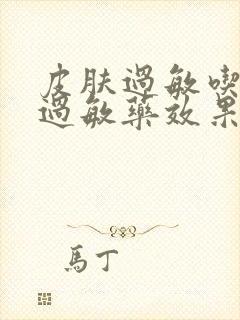 皮肤過敏喫
過敏藥效果
馬丁